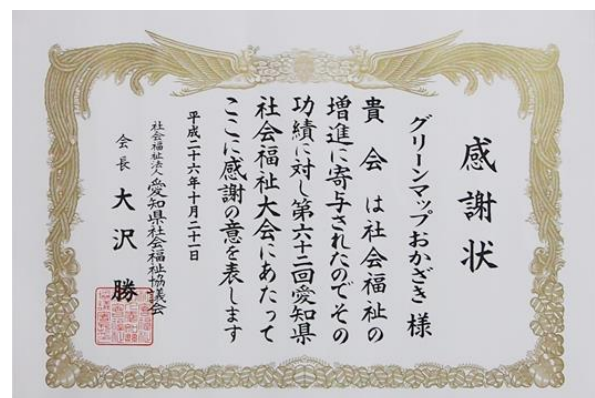 感謝状
グリーンマップおかざき 様
貴会は社会福祉の
増進に寄与されたのでその
功績に対し第六十二回愛知県
社会福祉大会にあたって
ここに感謝の意を表します
平成二十六年十月二十一日
社会福祉法人 愛知県社会福祉協議会
会長 大沢 勝